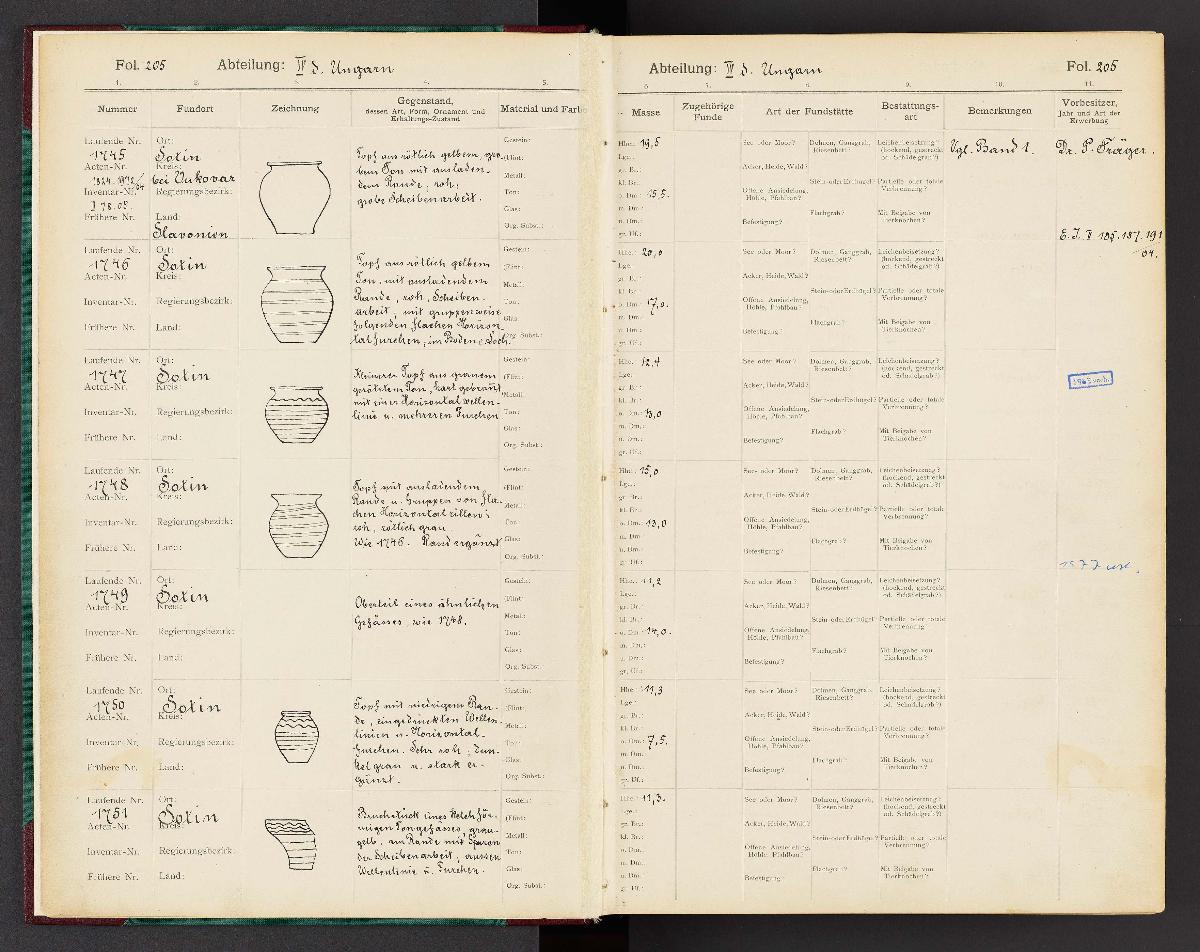 Fol. 205 Abteilung: IV d. Ungarn
Abteilung: IV d. Ungarn Fol. 205
1. 2. 3. 4. 5.
6. 7. 8. 9. 10. 11.
Nummer Fundort Zeichnung Gegenstand, dessen Art, Form, Ornament und Erhaltungs-Zustand Material und Farb
Masse Zugehörige Funde Art der Fundstätte Bestattungs-art Bemerkungen Vorbesitzer, Jahr und Art der Erwerbung
Laufende Nr. Ort:
1745 Sotin
Acten-Nr. Kreis:
bei Vukovar
Inventar-Nr. Regierungsbezirk:
I 78.05.
Frühere Nr. Land:
Slavonien
Topf aus rötlich gelbem, gro-
bem Ton mit ausladen-
dem Rande, roh,
grobe Scheibenarbeit.
Gestein:
(Flint:
Metall:
Ton:
Glas:
Org. Subst.:
Hhe. 19,5
Lge.:
gr. Br.:
kl. Br.:
o. Dm.: 15,5.
m. Dm.:
u. Dm.:
gr. Df.:
See oder Moor? Dolmen, Ganggrab, Riesenbett?
Acker, Heide, Wald?
Stein- oder Erdhügel?
Offene Ansiedelung, Höhle, Pfahlbau?
Flachgrab?
Befestigung?
Leichenbeisetzung? (hockend, gestreckt od. Schädelgrab?)
Partielle oder totale Verbrennung?
Mit Beigabe von Tierknochen?
Vgl. Band 1.
Dr. P. Träger.
E. J. II 185. 187. 191
04.
Laufende Nr. Ort:
1746 Sotin
Acten-Nr. Kreis:
Inventar-Nr. Regierungsbezirk:
Frühere Nr. Land:
Topf aus rötlich gelbem
Ton, mit ausladendem
Rande, roh, Scheiben-
arbeit, mit gruppenweise
folgenden flachen Horizon-
talfurchen, im Boden e. Loch.
Gestein:
(Flint:
Metall:
Ton:
Glas:
Org. Subst.:
Hhe. 20,0
Lge.
gr. Br.:
kl. Br.:
o. Dm.: 17,0.
m. Dm.:
u. Dm.:
gr. Df.:
See oder Moor? Dolmen, Ganggrab, Riesenbett?
Acker, Heide, Wald?
Stein- oder Erdhügel?
Offene Ansiedelung, Höhle, Pfahlbau?
Flachgrab?
Befestigung?
Leichenbeisetzung? (hockend, gestreckt od. Schädelgrab?)
Partielle oder totale Verbrennung?
Mit Beigabe von Tierknochen?
Laufende Nr. Ort:
1747 Sotin
Acten-Nr. Kreis:
Inventar-Nr. Regierungsbezirk:
Frühere Nr. Land:
Kleinerer Topf aus grauem
Ton, hart gebrannt,
mit einer Horizontalwellen-
linie u. mehreren Furchen
Gestein:
(Flint:
Metall:
Ton:
Glas:
Org. Subst.:
Hhe. 12,4
Lge.:
gr. Br.:
kl. Br.:
o. Dm.: 13,0
m. Dm.:
u. Dm.:
gr. Df.:
See oder Moor? Dolmen, Ganggrab, Riesenbett?
Acker, Heide, Wald?
Stein- oder Erdhügel?
Offene Ansiedelung, Höhle, Pfahlbau?
Flachgrab?
Befestigung?
Leichenbeisetzung? (hockend, gestreckt od. Schädelgrab?)
Partielle oder totale Verbrennung?
Mit Beigabe von Tierknochen?
Laufende Nr. Ort:
1748 Sotin
Acten-Nr. Kreis:
Inventar-Nr. Regierungsbezirk:
Frühere Nr. Land:
Topf mit ausladendem
Rande u. Gruppen von fla-
chen Horizontalrillen;
roh, rötlich grau
Wie 1746. Rand ergänzt
Gestein:
(Flint:
Metall:
Ton:
Glas:
Org. Subst.:
Hhe. 15,0
Lge.:
gr. Br.:
kl. Br.:
o. Dm.: 13,0
m. Dm.
u. Dm.:
gr. Df.:
See- oder Moor? Dolmen, Ganggrab, Riesenbett?
Acker, Heide, Wald?
Stein- oder Erdhügel?
Offene Ansiedelung, Höhle, Pfahlbau?
Flachgrab?
Befestigung?
Leichenbeisetzung? (hockend, gestreckt od. Schädelgrab?)
Partielle oder totale Verbrennung?
Mit Beigabe von Tierknochen?
1977
Laufende Nr. Ort:
1749 Sotin
Acten-Nr. Kreis:
Inventar-Nr. Regierungsbezirk:
Frühere Nr. Land:
Oberteil eines ähnlichen
Gefässes, wie 1748.
Gestein:
(Flint:
Metall:
Ton:
Glas:
Org. Subst.
Hhe.: 11,2
Lge.:
gr. Br.:
kl. Br.:
o. Dm.: 14,0.
m. Dm.:
u. Dm.:
gr. Df.:
See oder Moor? Dolmen, Ganggrab, Riesenbett?
Acker, Heide, Wald?
Stein- oder Erdhügel?
Offene Ansiedelung, Höhle, Pfahlbau?
Flachgrab?
Befestigung?
Leichenbeisetzung? (hockend, gestreckt od. Schädelgrab?)
Partielle oder totale Verbrennung
Mit Beigabe von Tierknochen?
Laufende Nr. Ort:
1750 Sotin
Acten-Nr. Kreis:
Inventar-Nr. Regierungsbezirk:
Frühere Nr. Land:
Topf mit niedrigem Ran-
de, eingedrückten Wellen-
linien u. Horizontal-
furchen. Sehr roh, dun-
kelgrau u. stark er-
gänzt.
Gestein:
(Flint:
Metall:
Ton:
Glas:
Org. Subst.:
Hhe. 11,3
Lge.:
gr. Br.:
kl. Br.:
o. Dm.: 7,5.
m. Dm.
u. Dm.:
gr. Df.:
See oder Moor? Dolmen, Ganggrab, Riesenbett?
Acker, Heide, Wald?
Stein- oder Erdhügel?
Offene Ansiedelung, Höhle, Pfahlbau?
Flachgrab?
Befestigung?
Leichenbeisetzung? (hockend, gestreckt od. Schädelgrab?)
Partielle oder totale Verbrennung?
Mit Beigabe von Tierknochen?
Laufende Nr. Ort:
1751 Sotin
Acten-Nr. Kreis:
Inventar-Nr. Regierungsbezirk:
Frühere Nr. Land:
Bruchstück eines kelchför-
migen Tongefässes, grau-
gelb, am Rande mit Spuren
der Scheibenarbeit, aussen
Wellenlinie u. Furchen.
Gestein:
(Flint:
Metall:
Ton:
Glas:
Org. Subst.:
Hhe.: 11,3.
Lge.:
gr. Br.:
kl. Br.:
o. Dm.:
m. Dm.:
u. Dm.
gr. Df.:
See oder Moor? Dolmen, Ganggrab, Riesenbett?
Acker, Heide, Wald?
Stein- oder Erdhügel?
Offene Ansiedelung, Höhle, Pfahlbau?
Flachgrab?
Befestigung?
Leichenbeisetzung? (hockend, gestreckt od. Schädelgrab?)
Partielle oder totale Verbrennung?
Mit Beigabe von Tierknochen?